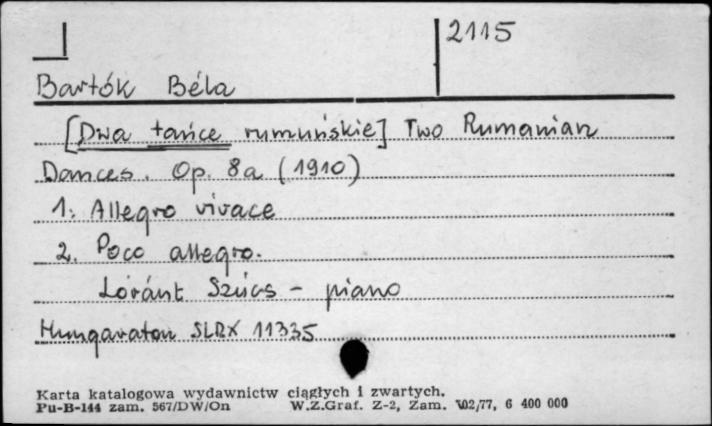 2115
Bartók Béla
[Dwa tańce rumuńskie] Two Rumanian
Dances. Op. 8a (1910)
1. Allegro vivace
2. Poco allegro.
Lóránt Szűcs - piano
Hungaraton SLRX 11335
Karta katalogowa wydawnictw ciągłych i zwartych.
Pu-B-144 zam. 567/DW/On W.Z.Graf. Z-2, Zam. 102/77, 6 400 000